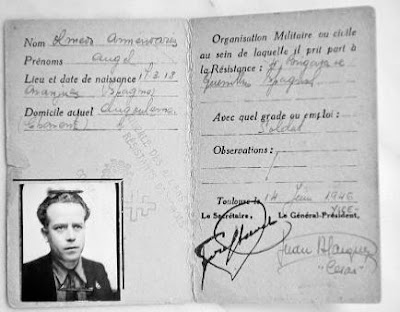 Nom Olmedo
Prénoms Angel
Lieu et date de naissance 17.2.18
Aranjuez (Spagne)
Domicile actuel Angouleme
(Charente)
Organisation Militaire ou civile
au sein de laquelle il prit part à
la Résistance :
Guerrillero Spagnol
Avec quel grade ou emploi :
Soldat
Observations :
Toulouse le 14 Juin 1946
Le Secrétaire, Le Général-Président,
Juan Blazquez
"Cesar"